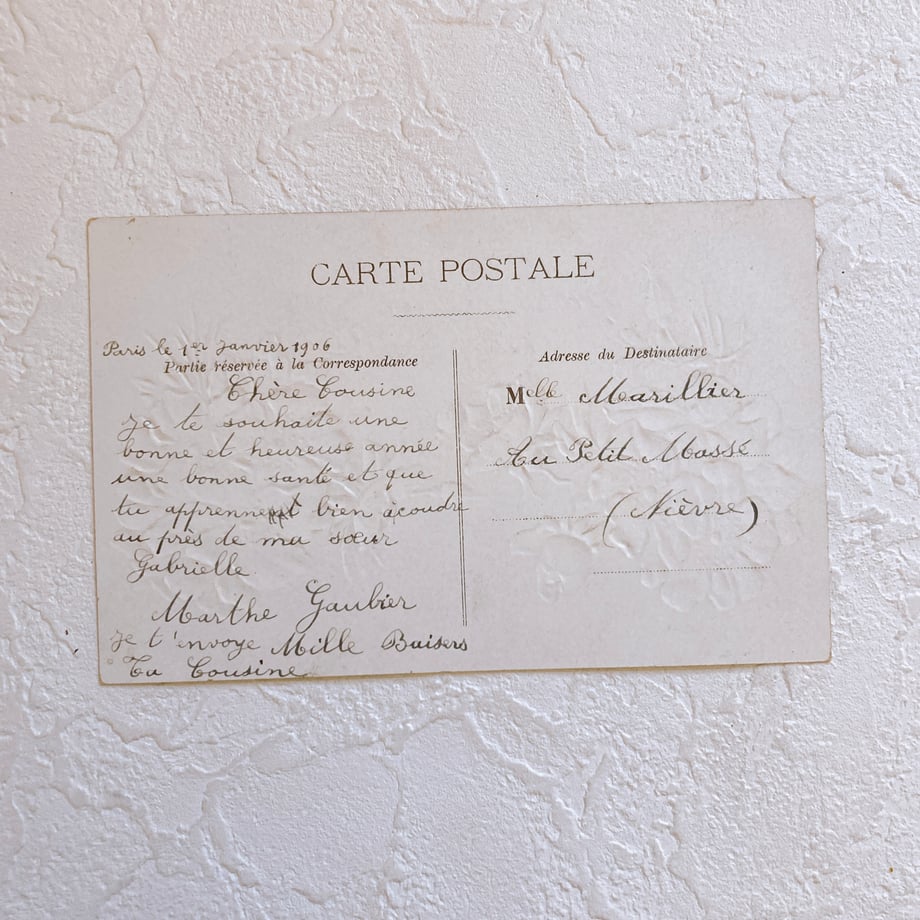 CARTE POSTALE
Paris le 1er Janvier 1906
Partie réservée à la Correspondance
Chère Cousine
Je te souhaite une
bonne et heureuse année
une bonne santé et que
tu apprennent bien à coudre
au près de ma sœur
Gabrielle
Marthe Gaubier
Je t'envoye Mille Baisers
Ta Cousine
Adresse du Destinataire
Melle Marillier
Au Petit Massé
(Nièvre)